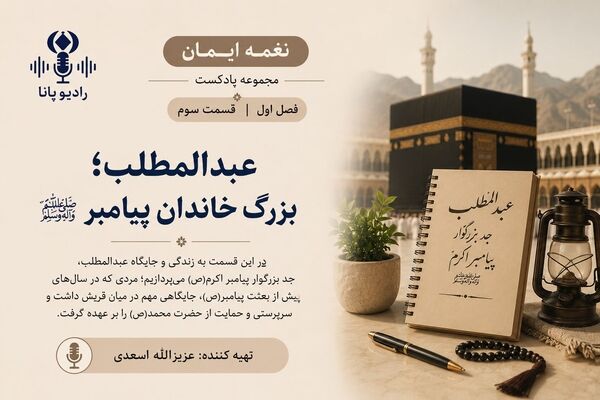 رادیو پانا
نغمه ایمان
مجموعه پادکست
فصل اول | قسمت سوم
عبدالمطلب؛
بزرگ خاندان پیامبر ﷺ
در این قسمت به زندگی و جایگاه عبدالمطلب،
جد بزرگوار پیامبر اکرم(ص) می‌پردازیم؛ مردی که در سال‌های
پیش از بعثت پیامبر(ص)، جایگاهی مهم در میان قریش داشت و
سرپرستی و حمایت از حضرت محمد(ص) را بر عهده گرفت.
تهیه کننده: عزیزالله اسعدی
عبدالمطلب
جد بزرگوار
پیامبر اکرم